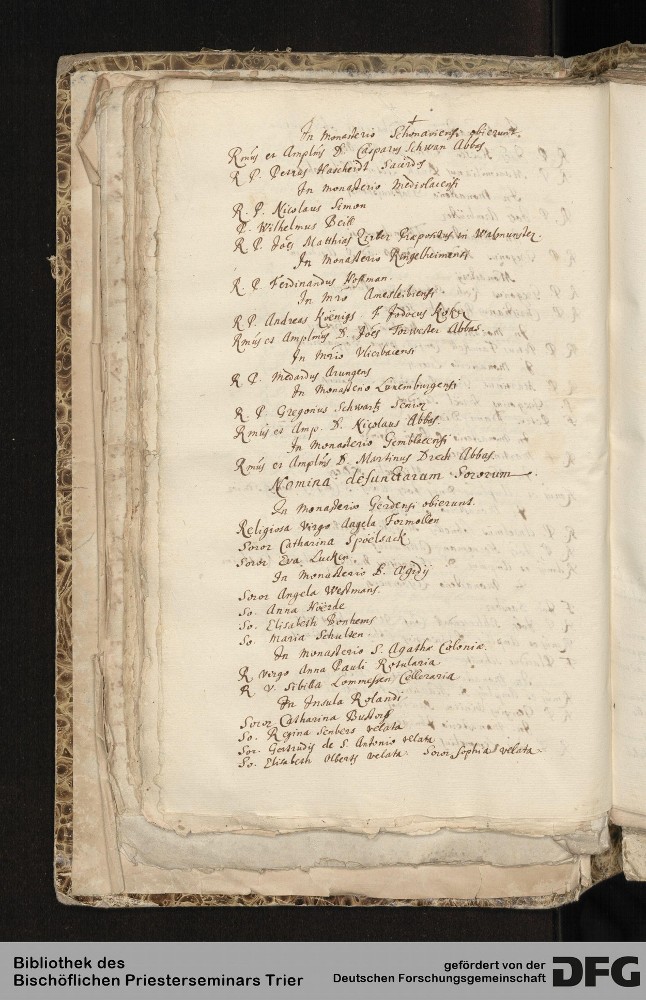 †
In Monasterio Schonaviensi obierunt.
Rmús et Amplmús D. Casparus Schwan Abbas
R. P. Petrus Hascheidt Sacerdos
In Monasterio Mediolacensi
R. P. Nicolaus Simon
P. Wilhelmus
R. P. Joês Matthias Præpositus in Walmunster.
In Monasterio Ringelheimensi
R. P. Ferdinandus Hoffman.
In Mrio Amesleibiensi
R P. Andreas Koenigs F. Jodocus
Rmús et Amplmús D. Joês Torwester Abbas
In Mrio Vlierbacensi
R. P. Medardus Arungens
In Monasterio Luxemburgensi
R. P. Gregorius Schwartz Senior
Rmús et Amp. D. Nicolaus Abbas.
In Monasterio Gemblacensi
Rmús et Amplmús D. Martinus Draek Abbas.
Nomina defunctarum Sororum.
In Monasterio Gerdensi obierunt.
Religiosa Virgo Angela Formollen
Soror Catharina Spoelsack
Soror Eva Lucken
In Monasterio S. Ægidij
Soror Angela Westmans.
So. Anna Hoerde
So. Elisabeth Bonhems
So. Maria Schulten
In Monasterio S. Agathæ Coloniæ.
R Virgo Anna Pauli Rotularia
R V. Sibilla Lommessen Celleraria
In Insula Rolandi
Soror Catharina Bustorff
So. Regina Senbers velata
Sor. Gertrudis de S. Antonio velata
So. Elisabeth Olberts velata Soror Sophia velata
Bibliothek des
Bischöflichen Priesterseminars Trier
gefördert von der
Deutschen Forschungsgemeinschaft
DFG